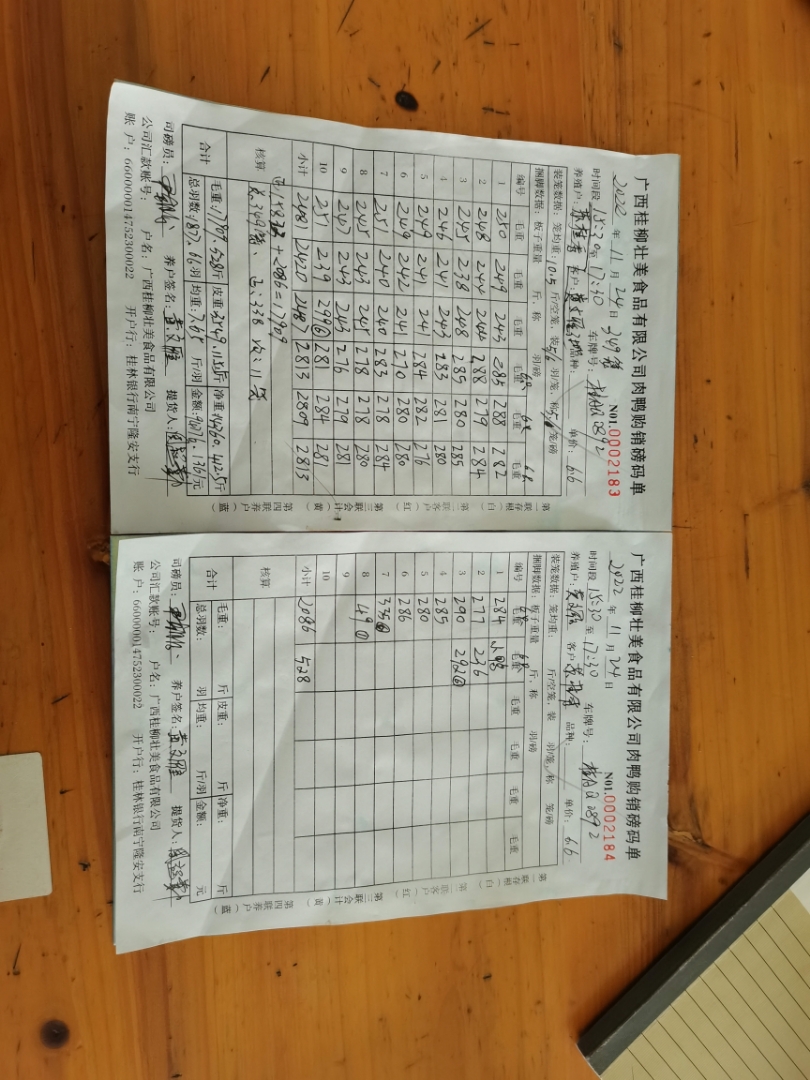 广西桂柳壮美食品有限公司肉鸭购销磅码单
NO1.0002183
2022 年 11 月 24 日
时间段 15:30 至 17:30 车牌号:
养殖户: 客户: 品种: 单价: 6.6
装笼数据: 笼均重: 10.5 斤/空笼, 装 5/6 羽/笼, 称 5 笼/磅
捆脚数据: 板子重量 斤, 称 羽/磅
编号 毛重 毛重 毛重 毛重 毛重 毛重
1 250 249 243 285 288 282
2 248 244 244 288 279 284
3 245 238 248 285 280 285
4 246 241 243 283 281 280
5 249 241 241 284 282 276
6 249 242 241 270 280 280
7 251 240 240 283 278 284
8 245 243 245 278 278 280
9 247 243 243 276 279 281
10 251 239 299⑥ 281 284 281
小计 2481 2420 2487 2813 2809 2813
核算
合计 毛重: 斤 皮重: 斤 净重: 斤
总羽数: 羽 均重: 7.65 斤/羽 金额: 元
司磅员: 养户签名: 提货人:
公司汇款账号: 户名: 广西桂柳壮美食品有限公司
账户: 660000014752300022 开户行: 桂林银行南宁隆安支行
第一联存根(白) 第二联客户(红) 第三联会计(黄) 第四联养户(蓝)
广西桂柳壮美食品有限公司肉鸭购销磅码单
NO1.0002184
2022 年 11 月 24 日
时间段 15:30 至 17:30 车牌号:
养殖户: 客户: 品种: 单价: 6.6
装笼数据: 笼均重: 斤/空笼, 装 羽/笼, 称 笼/磅
捆脚数据: 板子重量 斤, 称 羽/磅
编号 毛重 毛重 毛重 毛重 毛重 毛重
1 284 小鸭
2 277 236
3 290 292⑥
4 285
5 280
6 286
7 335⑥
8 49①
9
10
小计 2086 528
核算
合计 毛重: 斤 皮重: 斤 净重: 斤
总羽数: 羽 均重: 斤/羽 金额: 元
司磅员: 养户签名: 提货人:
公司汇款账号: 户名: 广西桂柳壮美食品有限公司
账户: 660000014752300022 开户行: 桂林银行南宁隆安支行
第一联存根(白) 第二联客户(红) 第三联会计(黄) 第四联养户(蓝)